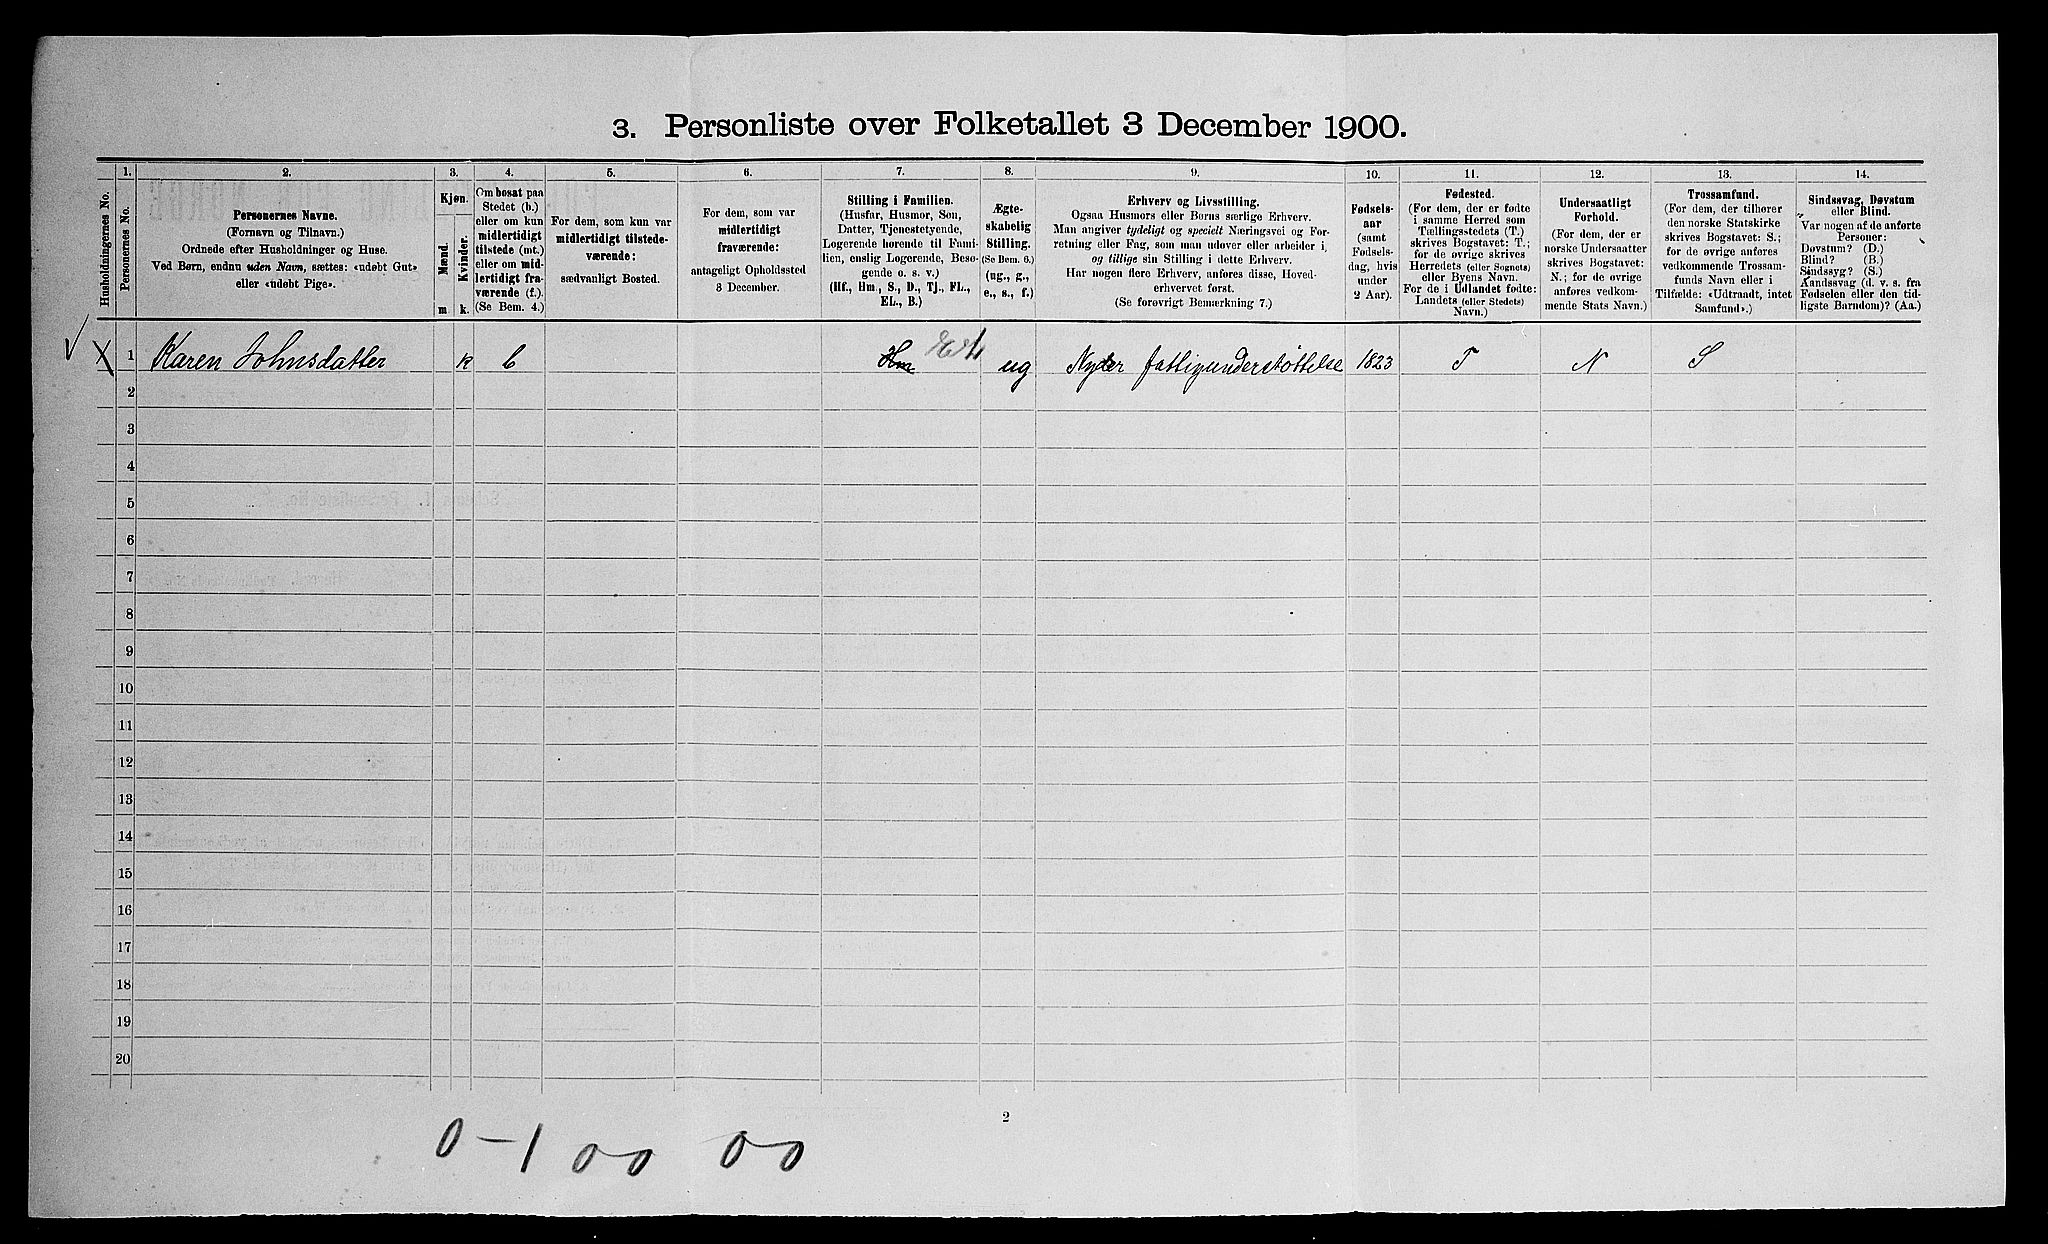 3. Personliste over Folketallet 3 December 1900.
Husholdningernes No.
1.
Personernes No.
2.
Personernes Navne.
(Fornavn og Tilnavn.)
Ordnede efter Husholdninger og Huse.
Ved Børn, endnu uden Navn, sættes: «udøbt Gut»
eller «udøbt Pige».
3.
Kjøn.
Mænd.
Kvinder.
m.
k.
4.
Om bosat paa
Stedet (b.)
eller om kun
midlertidigt
tilstede (mt.)
eller om mid-
lertidigt fra-
værende (f.).
(Se Bem. 4.)
5.
For dem, som kun var
midlertidigt tilstede-
værende:
sædvanligt Bosted.
6.
For dem, som var
midlertidigt
fraværende:
antageligt Opholdssted
3 December.
7.
Stilling i Familien.
(Husfar, Husmor, Søn,
Datter, Tjenestetyende,
Logerende hørende til Fami-
lien, enslig Logerende, Besø-
gende o. s. v.)
(Hf., Hm., S., D., Tj., FL.,
EL., B.)
8.
Ægte-
skabelig
Stilling.
(Se Bem. 6.)
(ug., g.,
e., s., f.)
9.
Erhverv og Livsstilling.
Ogsaa Husmors eller Børns særlige Erhverv.
Man angiver tydeligt og specielt Næringsvei og For-
retning eller Fag, som man udover eller arbeider i,
og tillige sin Stilling i dette Erhverv.
Har nogen flere Erhverv, anføres disse, Hoved-
erhvervet først.
(Se forøvrigt Bemerkning 7.)
10.
Fødsels-
aar
(samt
Fødsels-
dag, hvis
under
2 Aar).
11.
Fødested.
(For dem, der er fødte
i samme Herred som
Tællingsstedets (T.)
skrives Bogstavet: T.;
for de øvrige skrives
Herredets (eller Sognets)
eller Byens Navn.
For de i Udlandet fødte:
Landets (eller Stedets)
Navn.)
12.
Undersaatligt
Forhold.
(For dem, der er
norske Undersaatter
skrives Bogstavet:
N.; for de øvrige
anføres vedkom-
mende Stats Navn.)
13.
Trossamfund.
(For dem, der tilhører
den norske Statskirke
skrives Bogstavet: S.;
for de øvrige anføres
vedkommende Trossam-
funds Navn eller i
Tilfælde: «Udtraadt, intet
Samfund».)
14.
Sindssvag, Døvstum
eller Blind.
Var nogen af de anførte
Personer:
Døvstum? (D.)
Blind? (B.)
Sindssyg? (S.)
Aandssvag (d. v. s. fra
Fødselen eller den tid-
ligste Barndom)? (Aa.)
1 Karen Johnsdatter k b Hm ug Nyder fattigunderstøttelse 1823 T N S
2
3
4
5
6
7
8
9
10
11
12
13
14
15
16
17
18
19
20
2
0-1 00 00